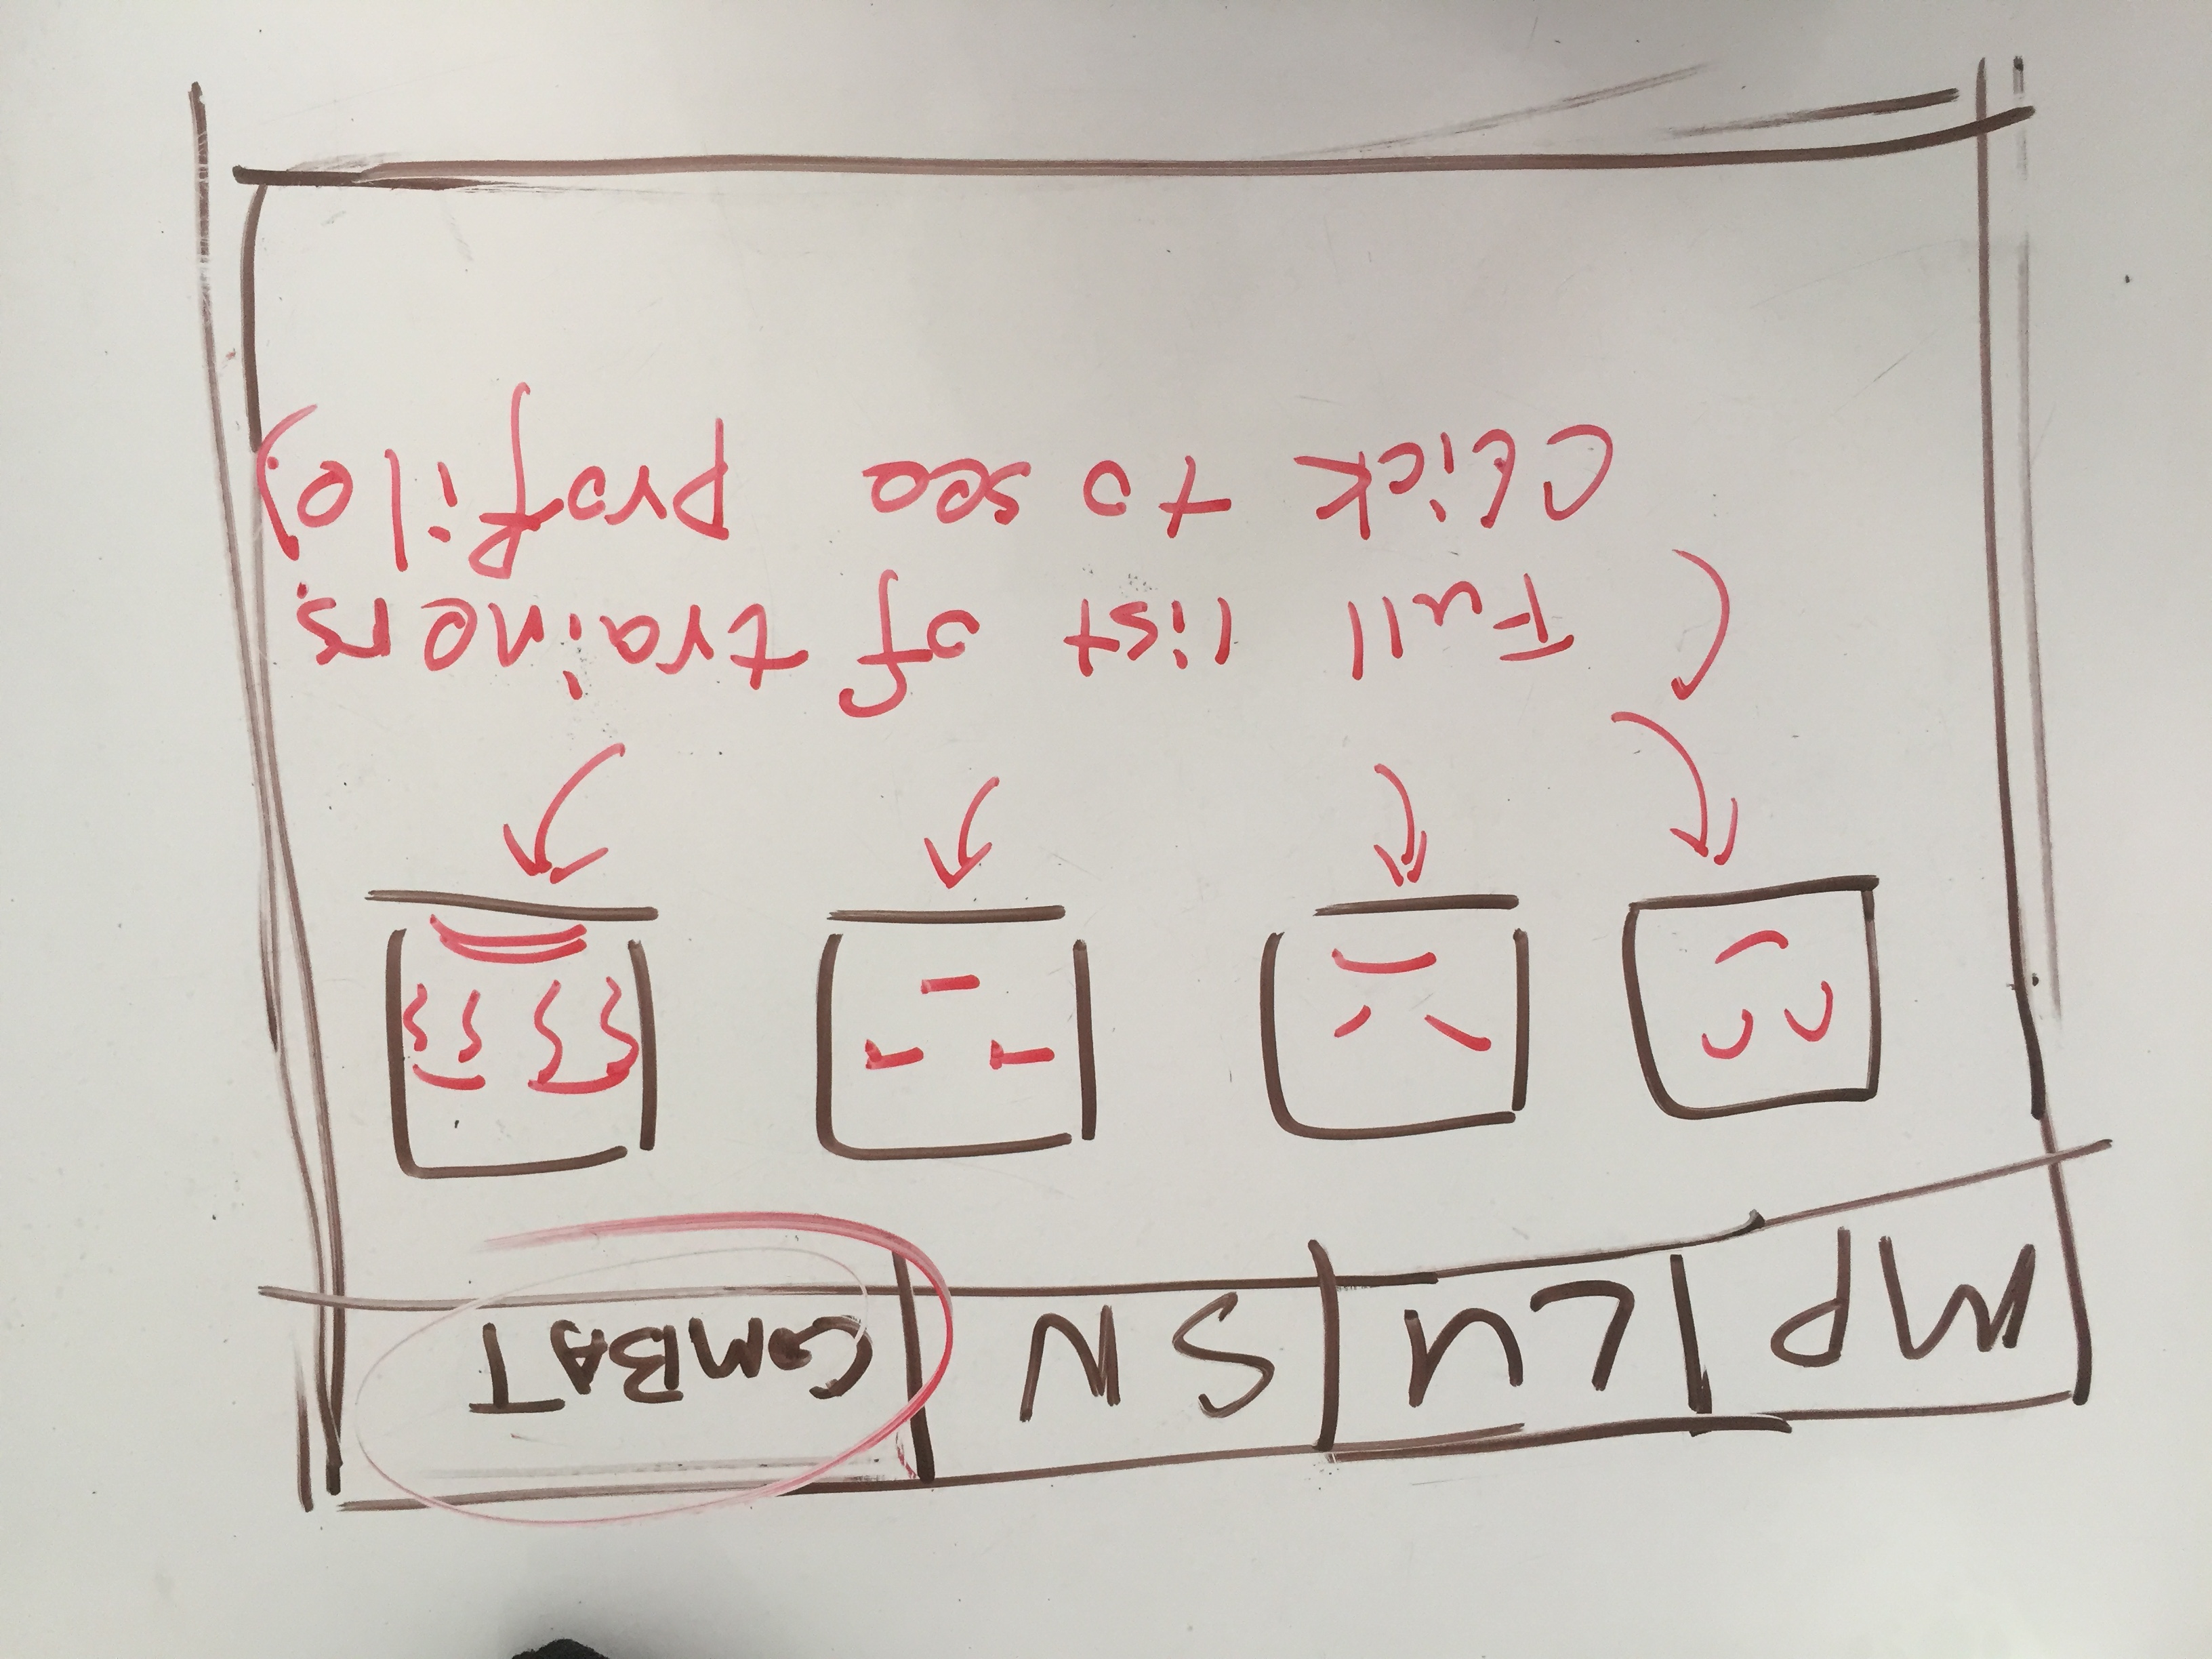 MP LU SN COMBAT
(Full list of trainers.
Click to see profile)